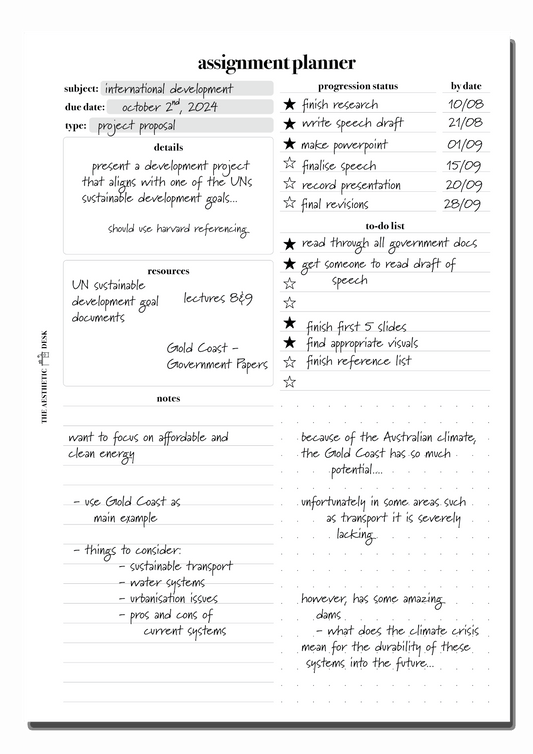 assignment planner
subject: international development
due date: october 2nd, 2024
type: project proposal
details
present a development project
that aligns with one of the UNs
sustainable development goals...
should use harvard referencing
resources
UN sustainable
development goal
documents
lectures 8&9
Gold Coast -
Government Papers
notes
want to focus on affordable and
clean energy
- use Gold Coast as
main example
- things to consider:
- sustainable transport
- water systems
- urbanisation issues
- pros and cons of
current systems
progression status by date
★ finish research 10/08
★ write speech draft 21/08
★ make powerpoint 01/09
☆ finalise speech 15/09
☆ record presentation 20/09
☆ final revisions 28/09
to-do list
★ read through all government docs
★ get someone to read draft of
☆ speech
☆
★ finish first 5 slides
★ find appropriate visuals
☆ finish reference list
☆
because of the Australian climate,
the Gold Coast has so much
potential....
unfortunately in some areas such
as transport it is severely
lacking
however, has some amazing
dams
- what does the climate crisis
mean for the durability of these
systems into the future...
THE AESTHETIC DESK